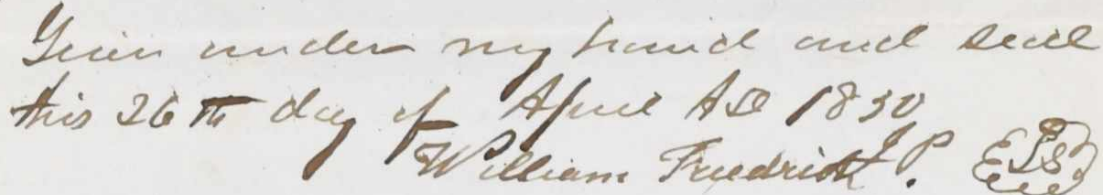 Given under my hand and seal
this 26th day of April AD 1850
William Friedrich J.P. L.S.